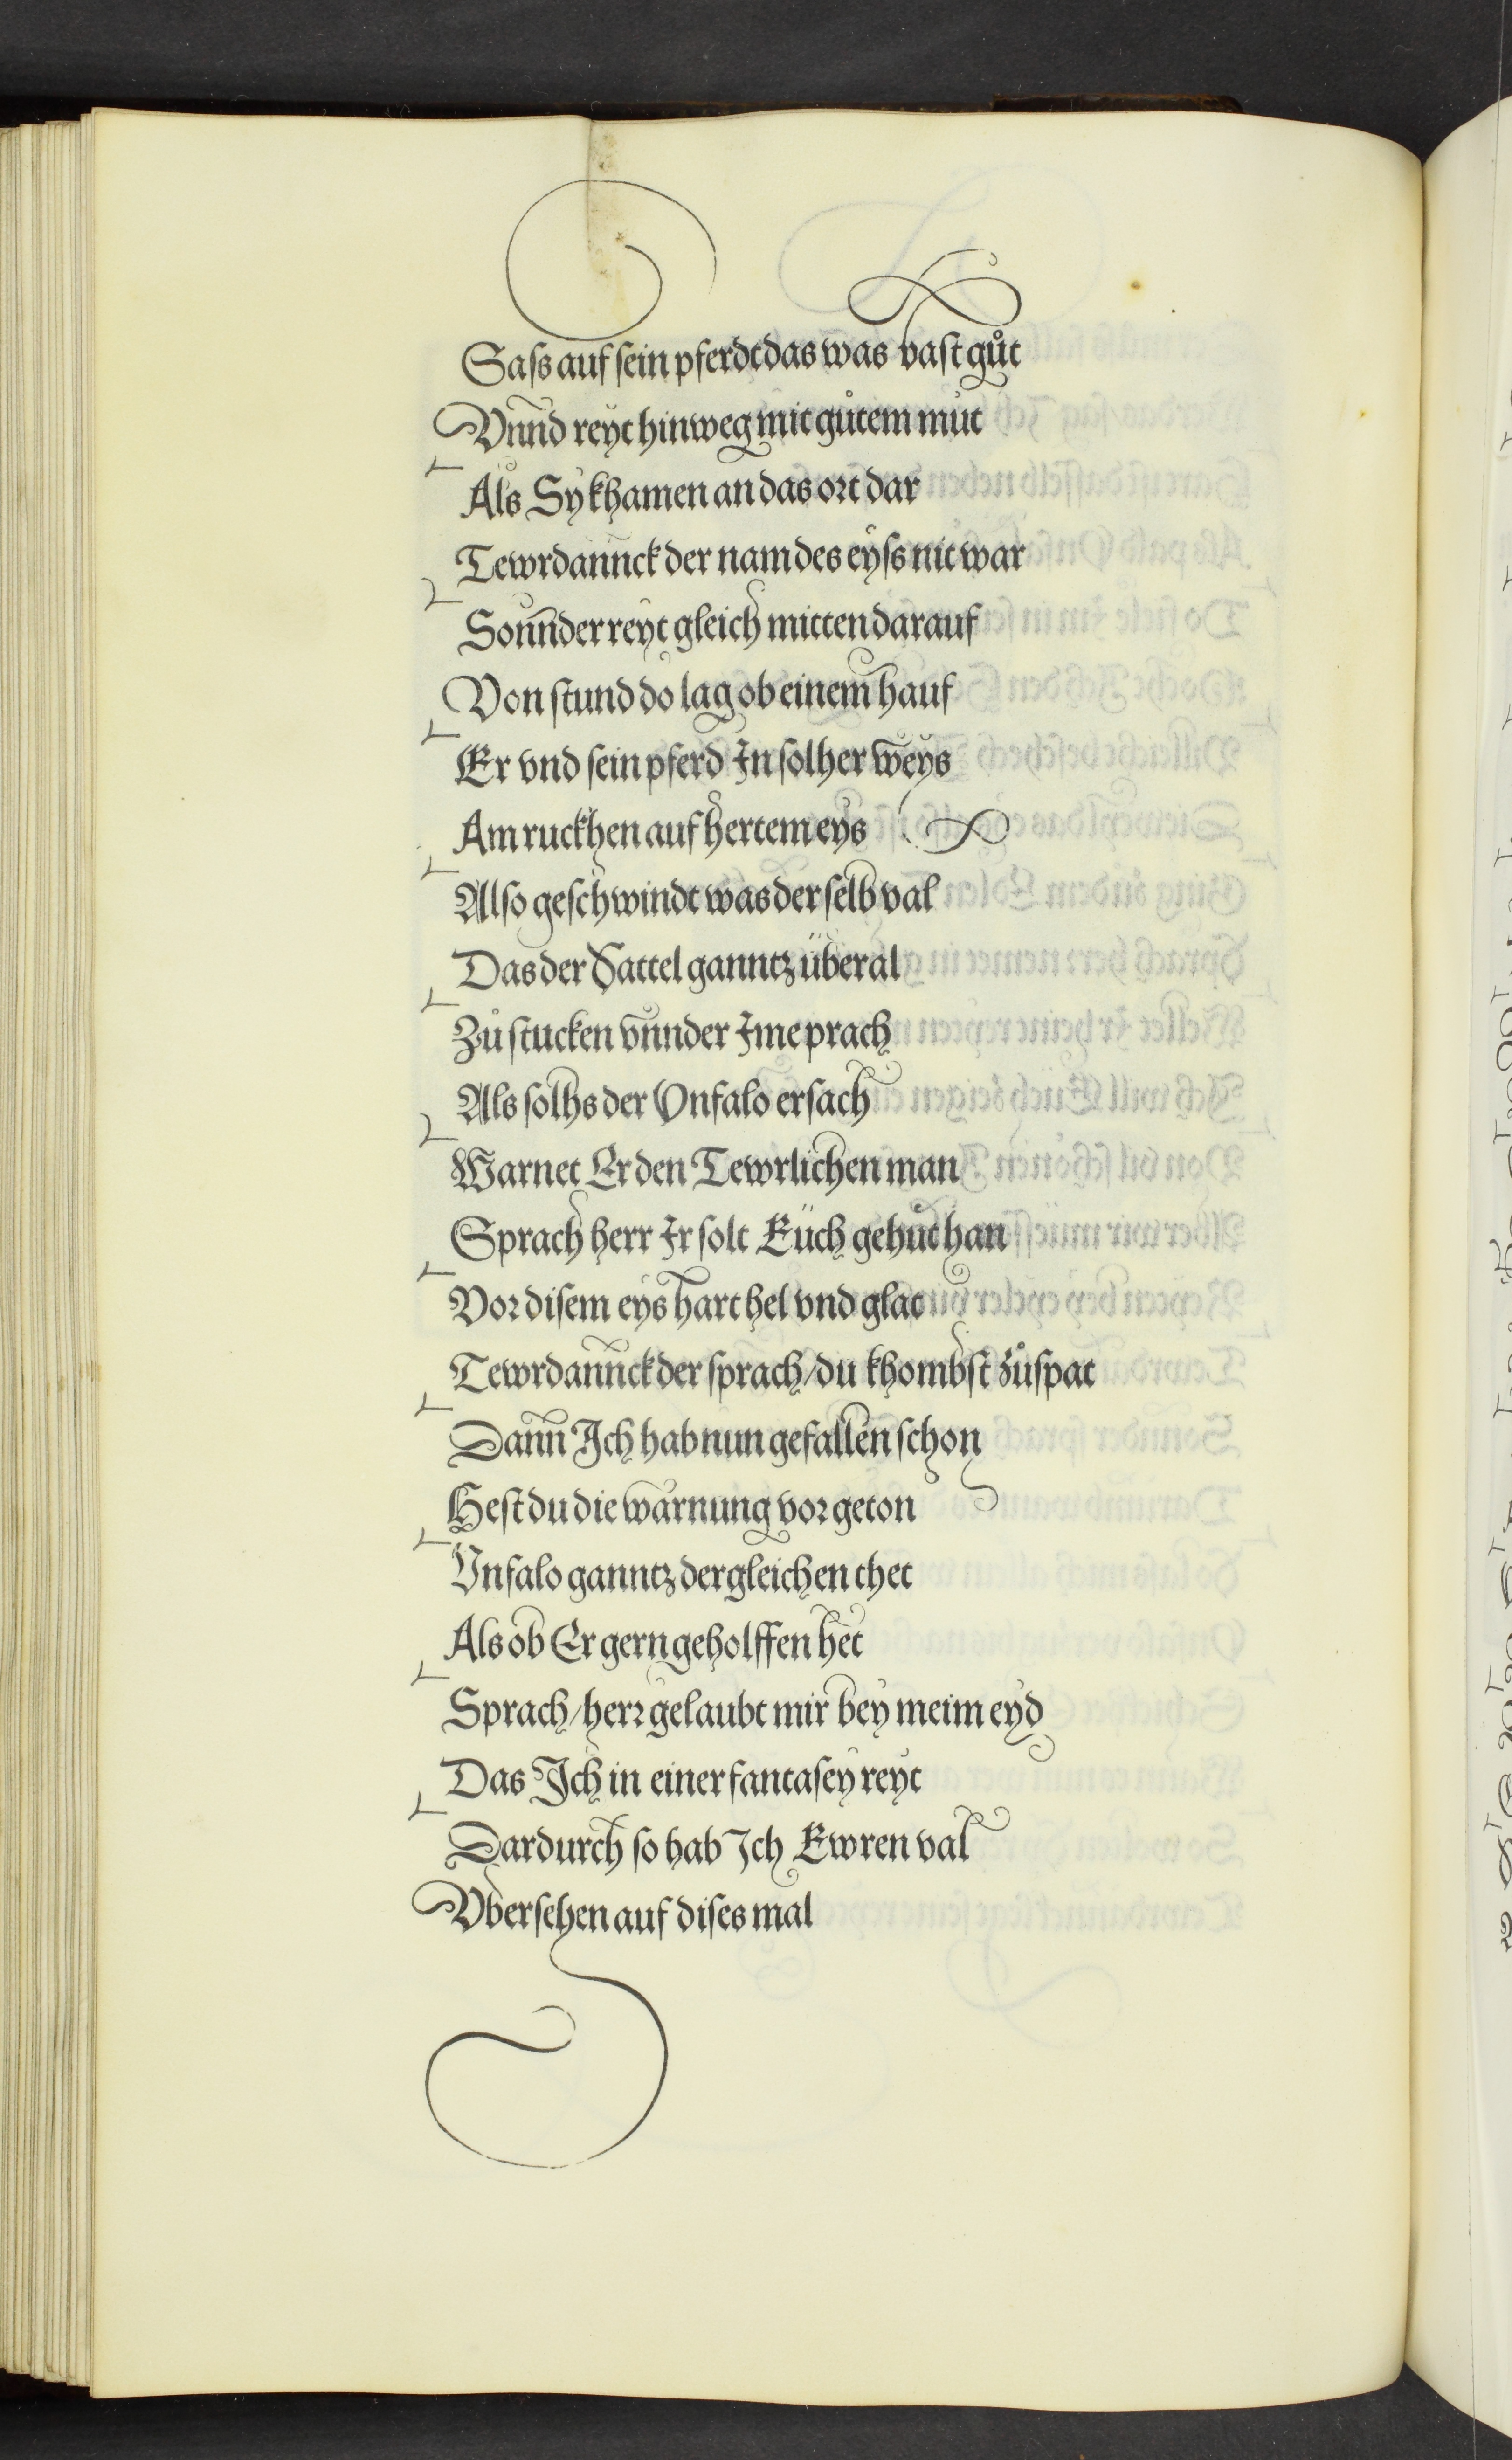 Saſs auf ſein pferdt das was vaſt gůt
Vnnd reyt hinweg mit gůtem můt
Als Sy khamen an das ort dar
Tewrdannck der nam des eyſs nit war
Sonnder reyt gleich mitten darauf
Von ſtund do lag ob einem hauf
Er vnd ſein pferd In ſolher weys
Am ruckhen auf hertem eys
Alſo geſchwindt was der ſelb val
Das der Sattel ganntz überal
Zů ſtucken vnnder Ime prach
Als ſolhs der Vnfalo erſach
Warnet Er den Tewrlichen man
Sprach herr Ir ſolt Eüch gehůt han
Vor diſem eys hart hel vnd glat
Tewrdannck der ſprach/du khombſt zůſpat
Dann Ich hab nun gefallen ſchon
Heſt du die warnung vor geton
Vnfalo ganntz dergleichen thet
Als ob Er gern geholffen het
Sprach/herr gelaubt mir bey meim eyd
Das Ich in einer fantaſey reyt
Dardurch ſo hab Ich Ewren val
Vberſehen auf diſes mal